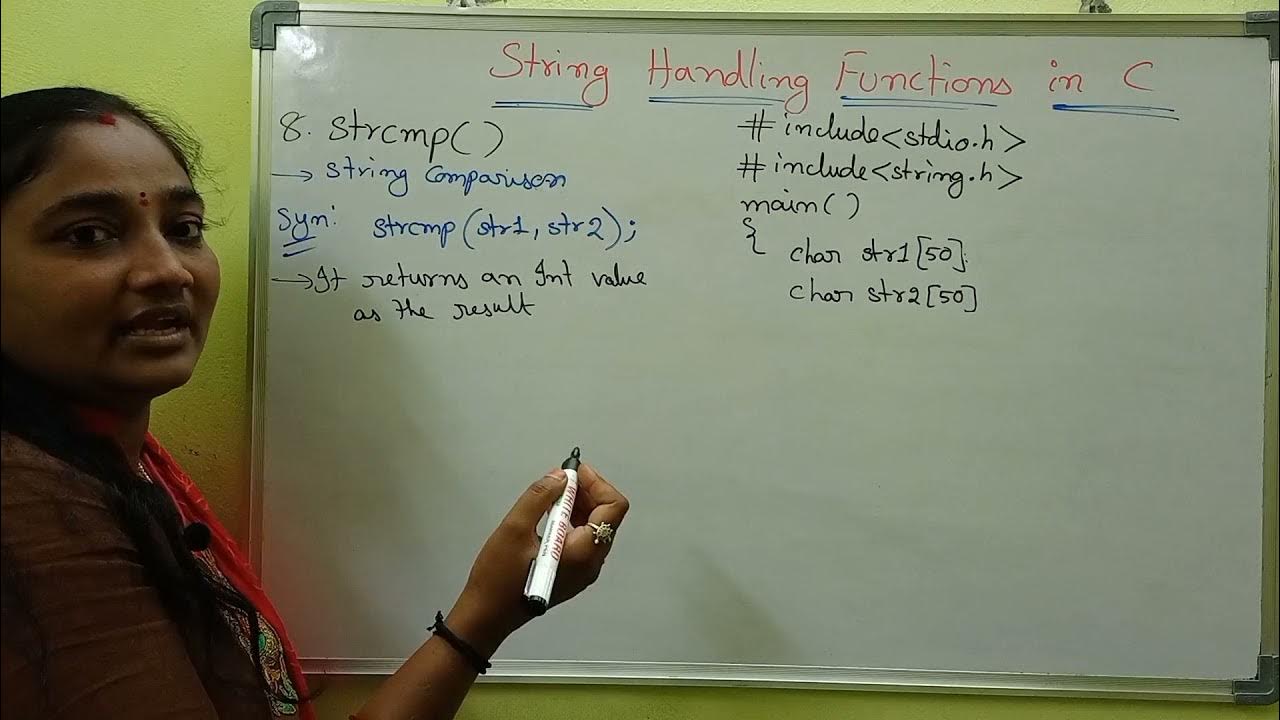 String Handling Functions in C
8. strcmp()
→ string Comparison
Syn: strcmp(str1, str2);
→ It returns an Int value
as the result
# include<stdio.h>
# include<string.h>
main()
{ char str1[50];
char str2[50]
WHITE BOARD